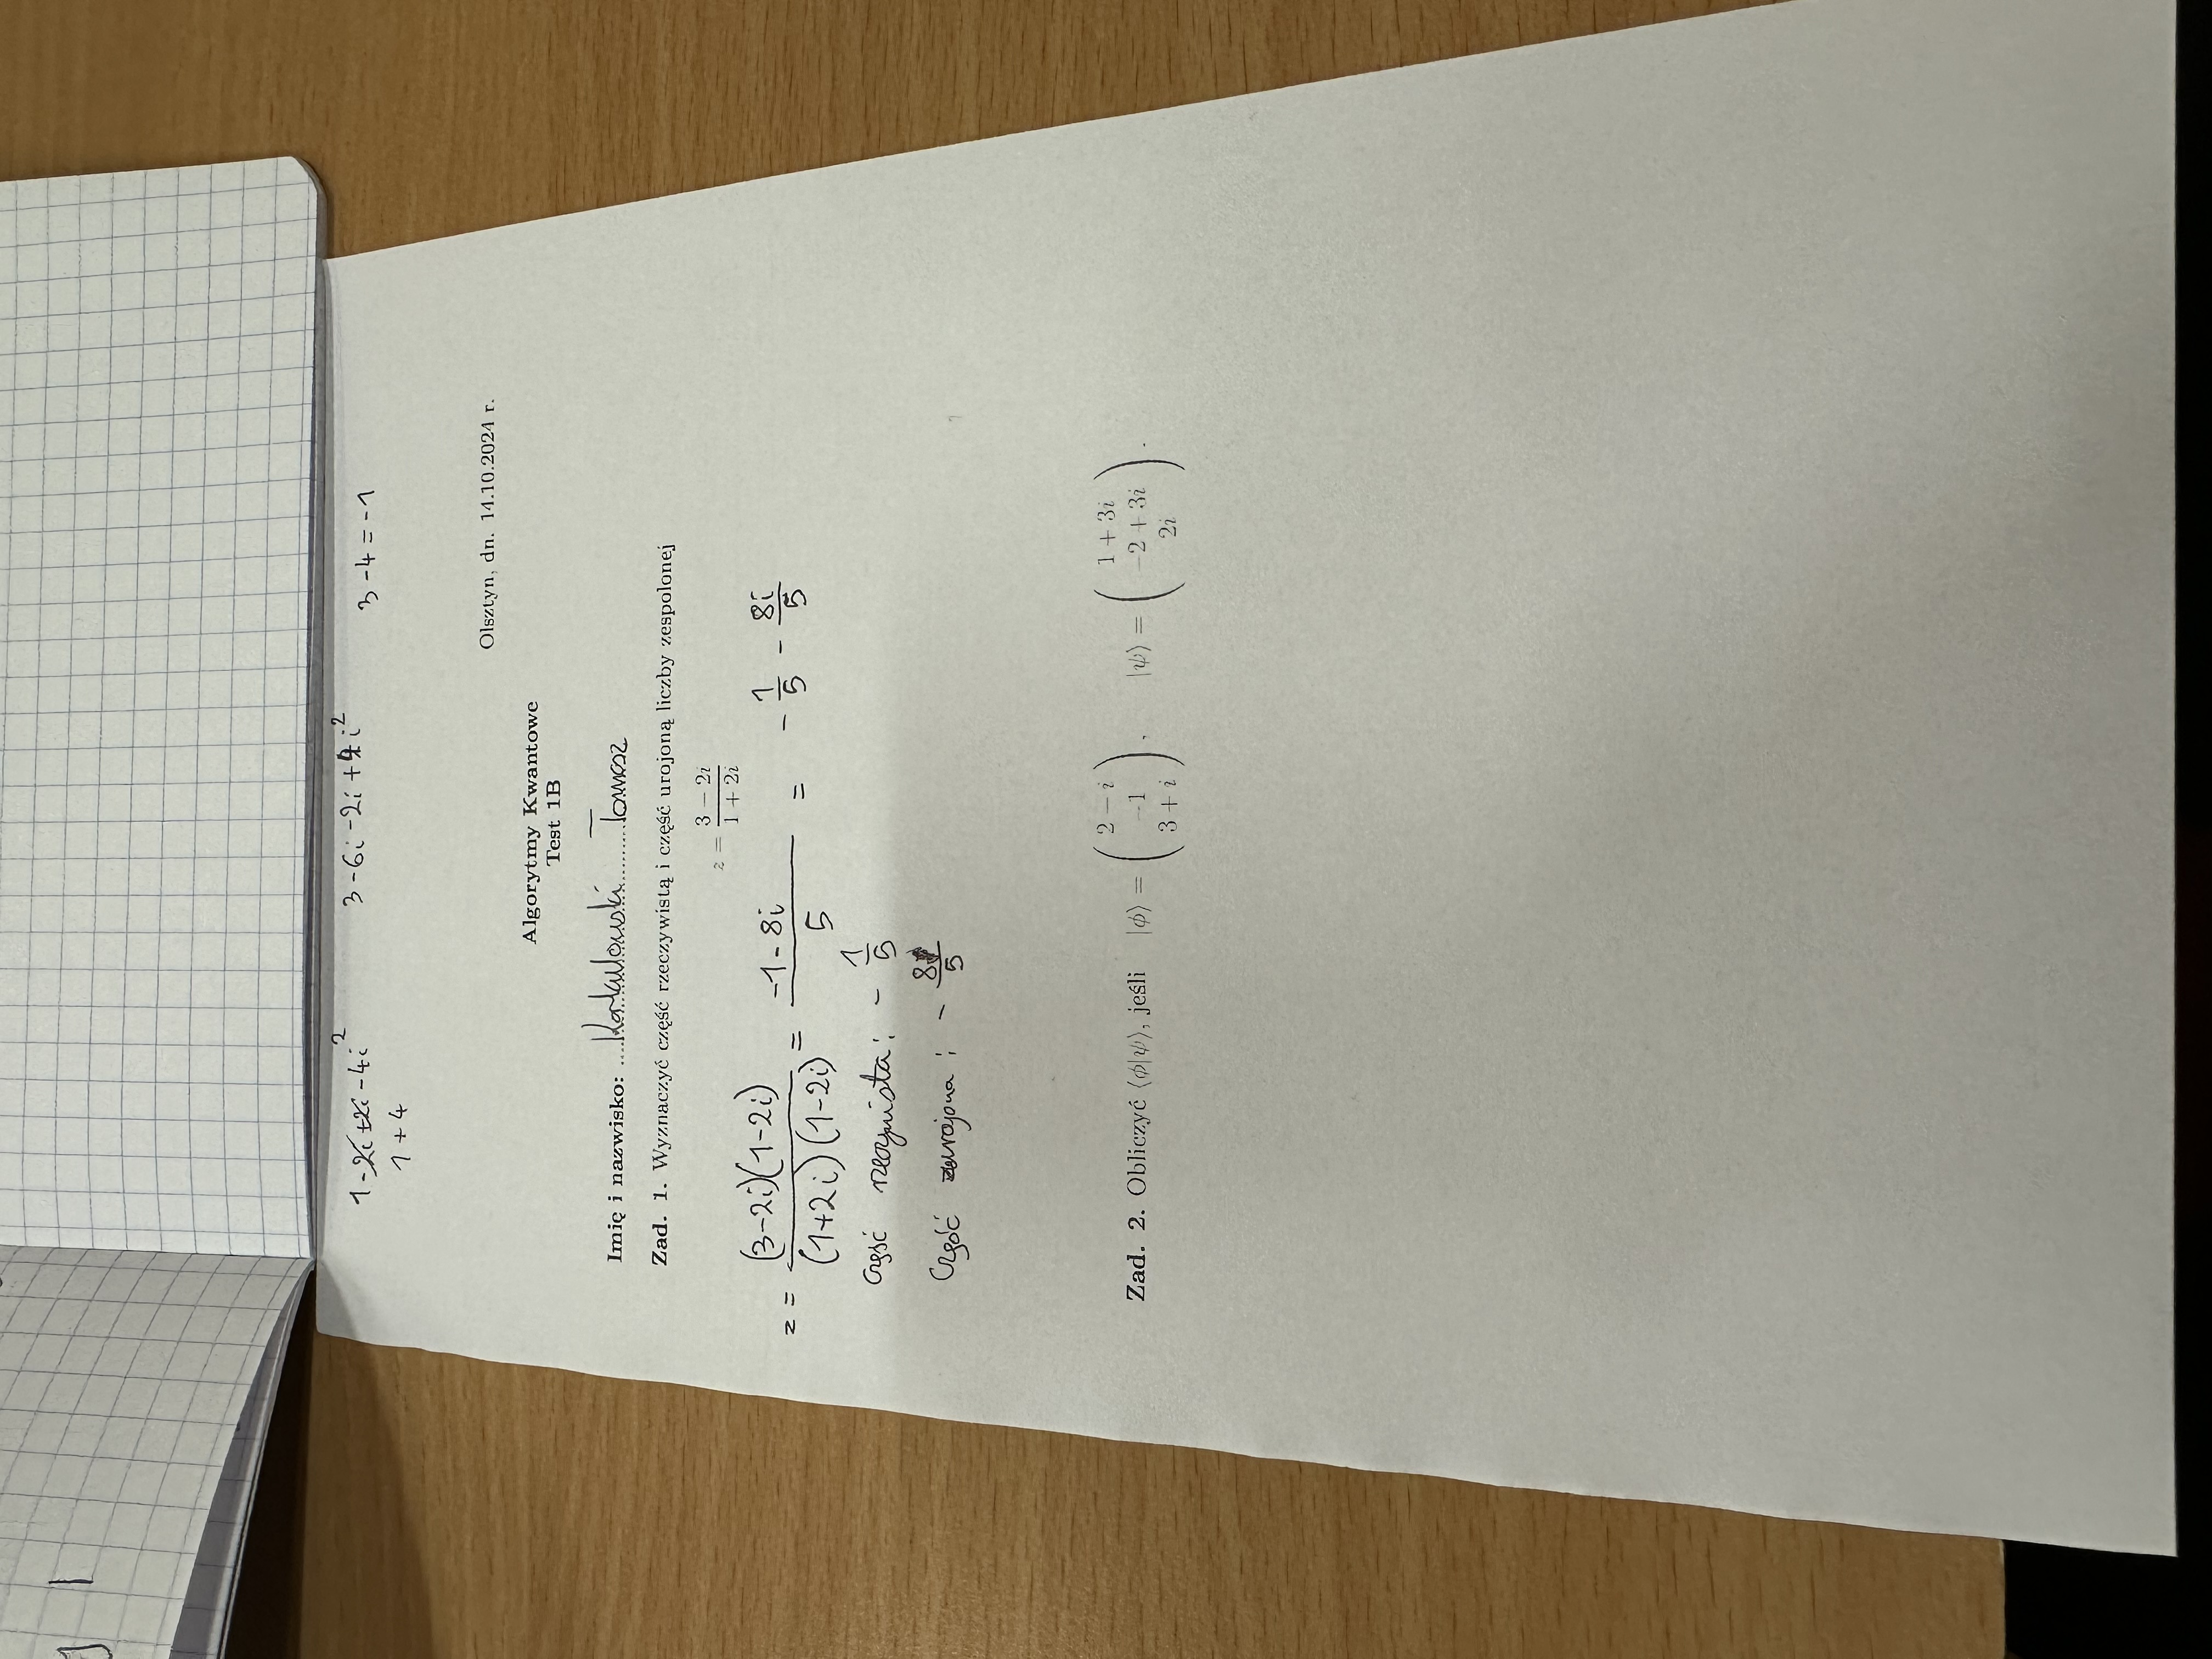 1-2i+2i-4i²
1+4
3-6i-2i+4i²
3-4=-1
Olsztyn, dn. 14.10.2024 r.
Algorytmy Kwantowe
Test 1B
Imię i nazwisko: Tomasz
Zad. 1. Wyznaczyć część rzeczywistą i część urojoną liczby zespolonej
z = \frac{3 - 2i}{1 + 2i}
z = \frac{(3-2i)(1-2i)}{(1+2i)(1-2i)} = \frac{-1-8i}{5} = -\frac{1}{5} - \frac{8i}{5}
Część rzeczywista: -\frac{1}{5}
Część urojona: -\frac{8}{5}
Zad. 2. Obliczyć ⟨ϕ|ψ⟩, jeśli |ϕ⟩ = \begin{pmatrix} 2 - i \\ -1 \\ 3 + i \end{pmatrix}, |ψ⟩ = \begin{pmatrix} 1 + 3i \\ -2 + 3i \\ 2i \end{pmatrix}.